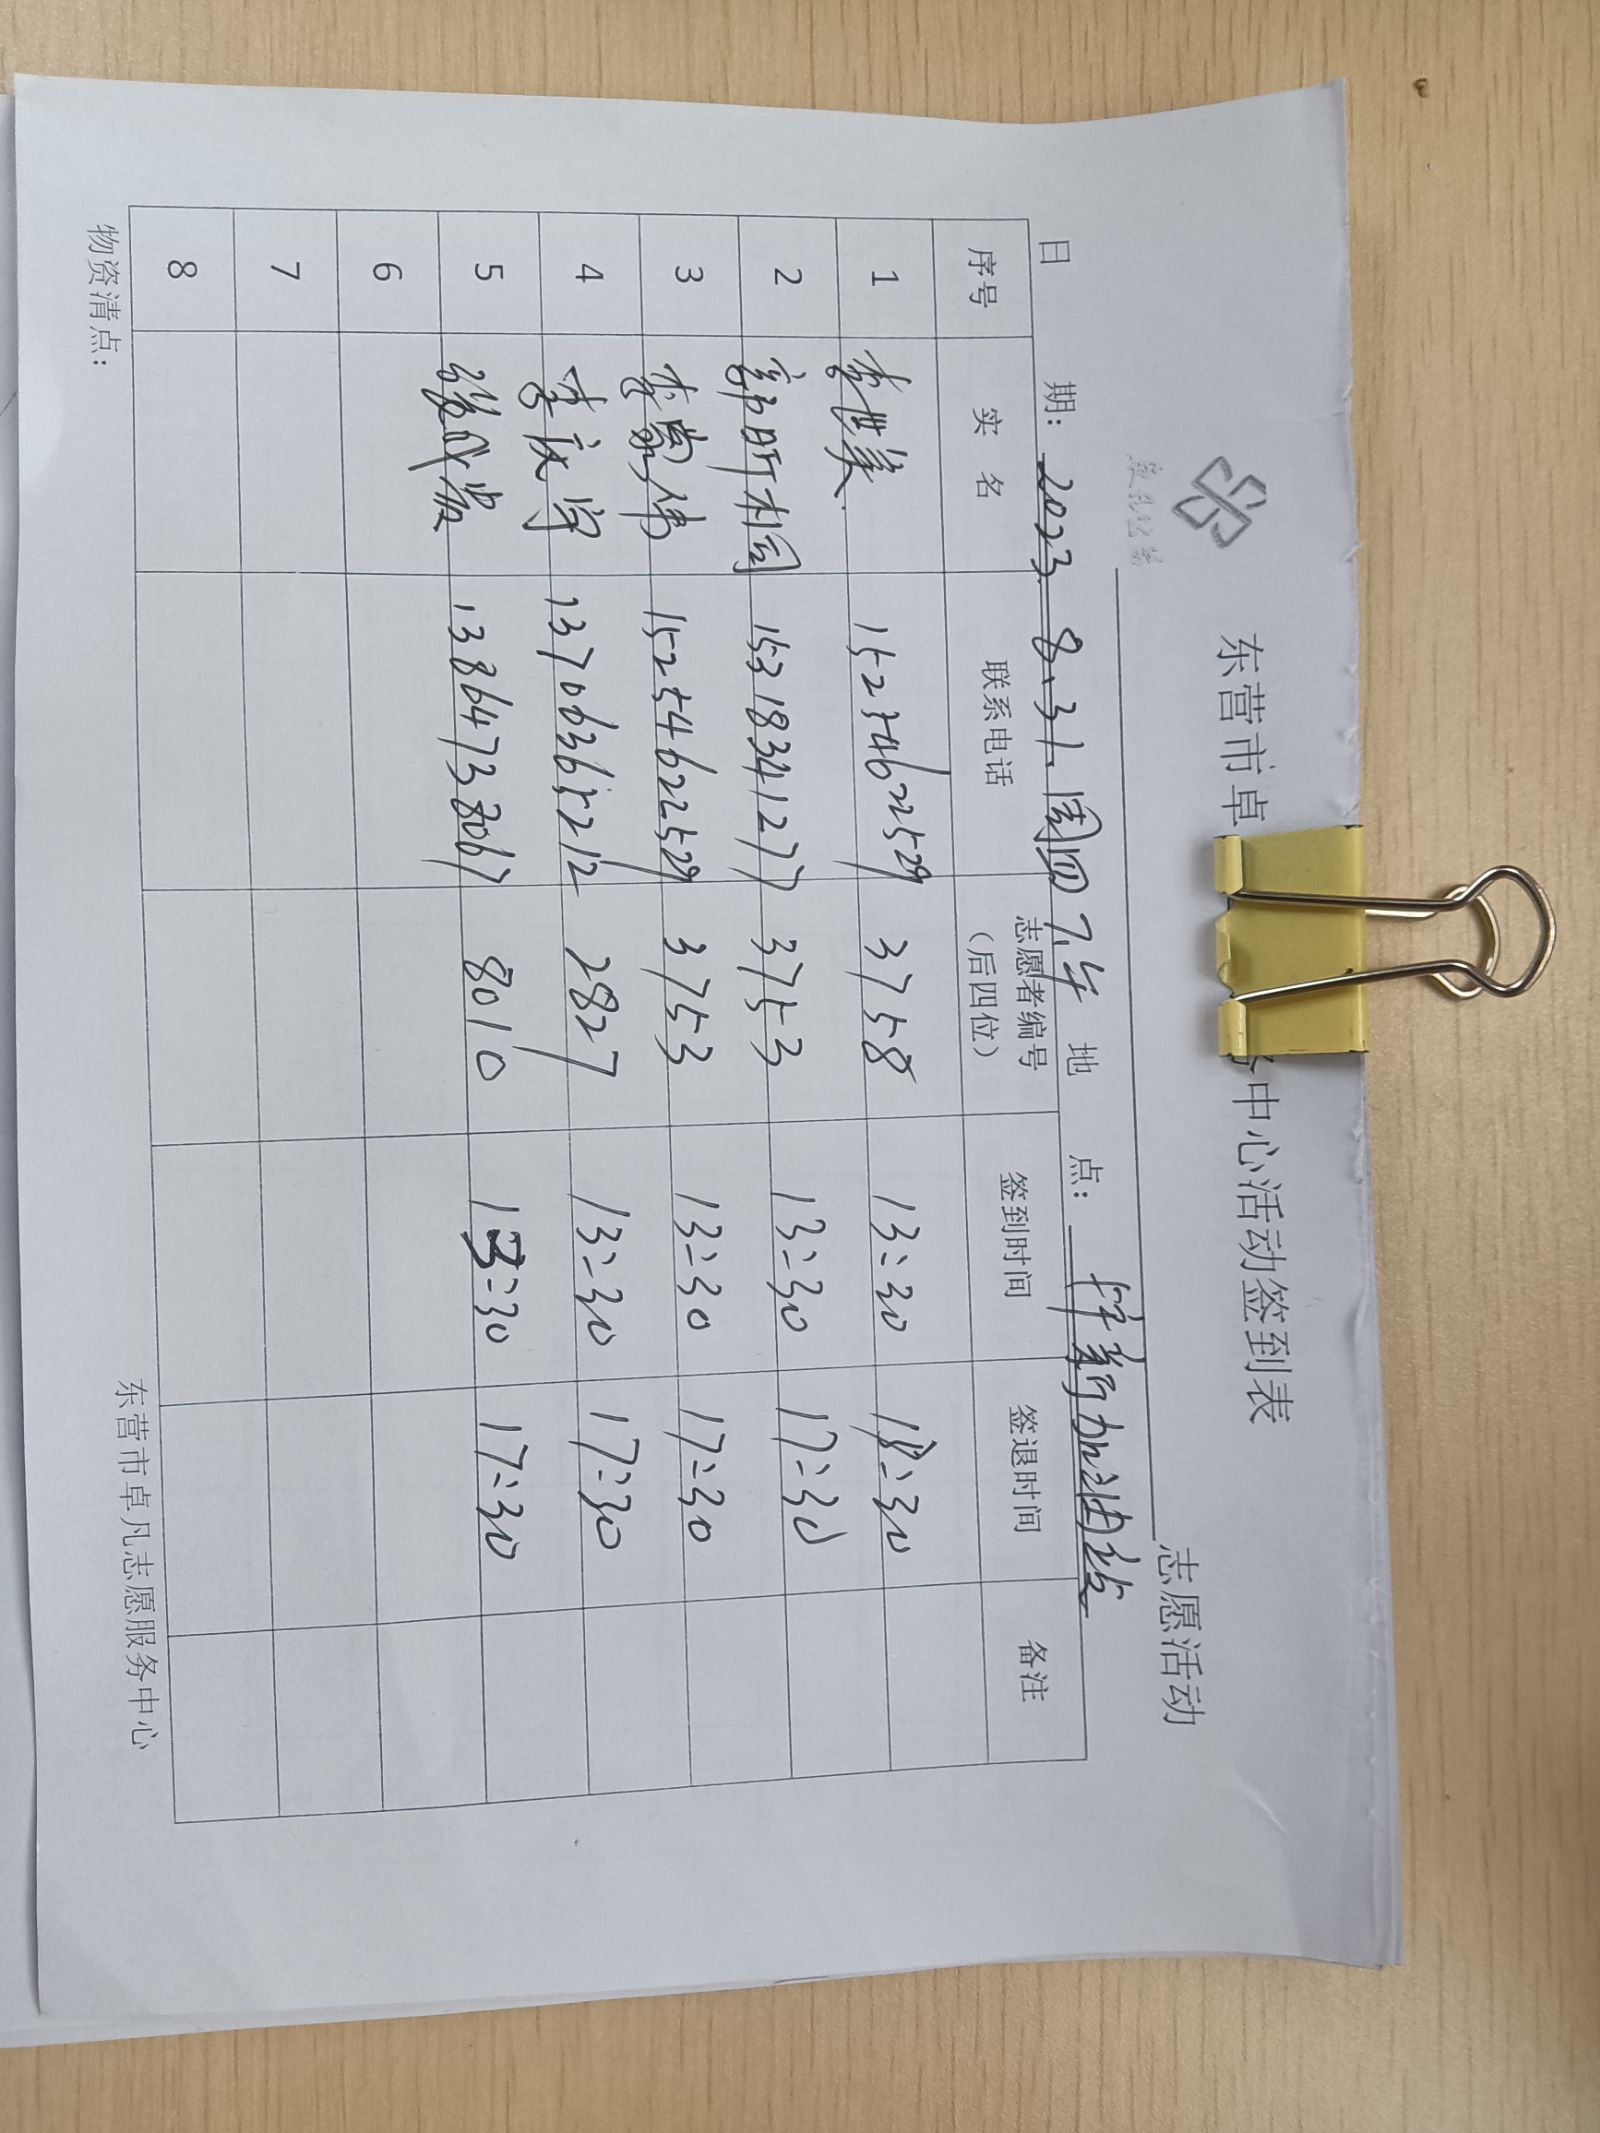 东营市卓 务中心活动签到表
志愿活动
日 期: 2023. 8.31.周四 下午 地 点: 祥新加油站
序号 实 名 联系电话 志愿者编号（后四位） 签到时间 签退时间 备注
1 李世美 15254622529 3758 13:30 18:30
2 郭昕桐 15318341277 3753 13:30 17:30
3 李蒙伟 15254622529 3753 13:30 17:30
4 李庆学 13706365212 2827 13:30 17:30
5 13864738067 8010 13:30 17:30
6
7
8
物资清点: 东营市卓凡志愿服务中心